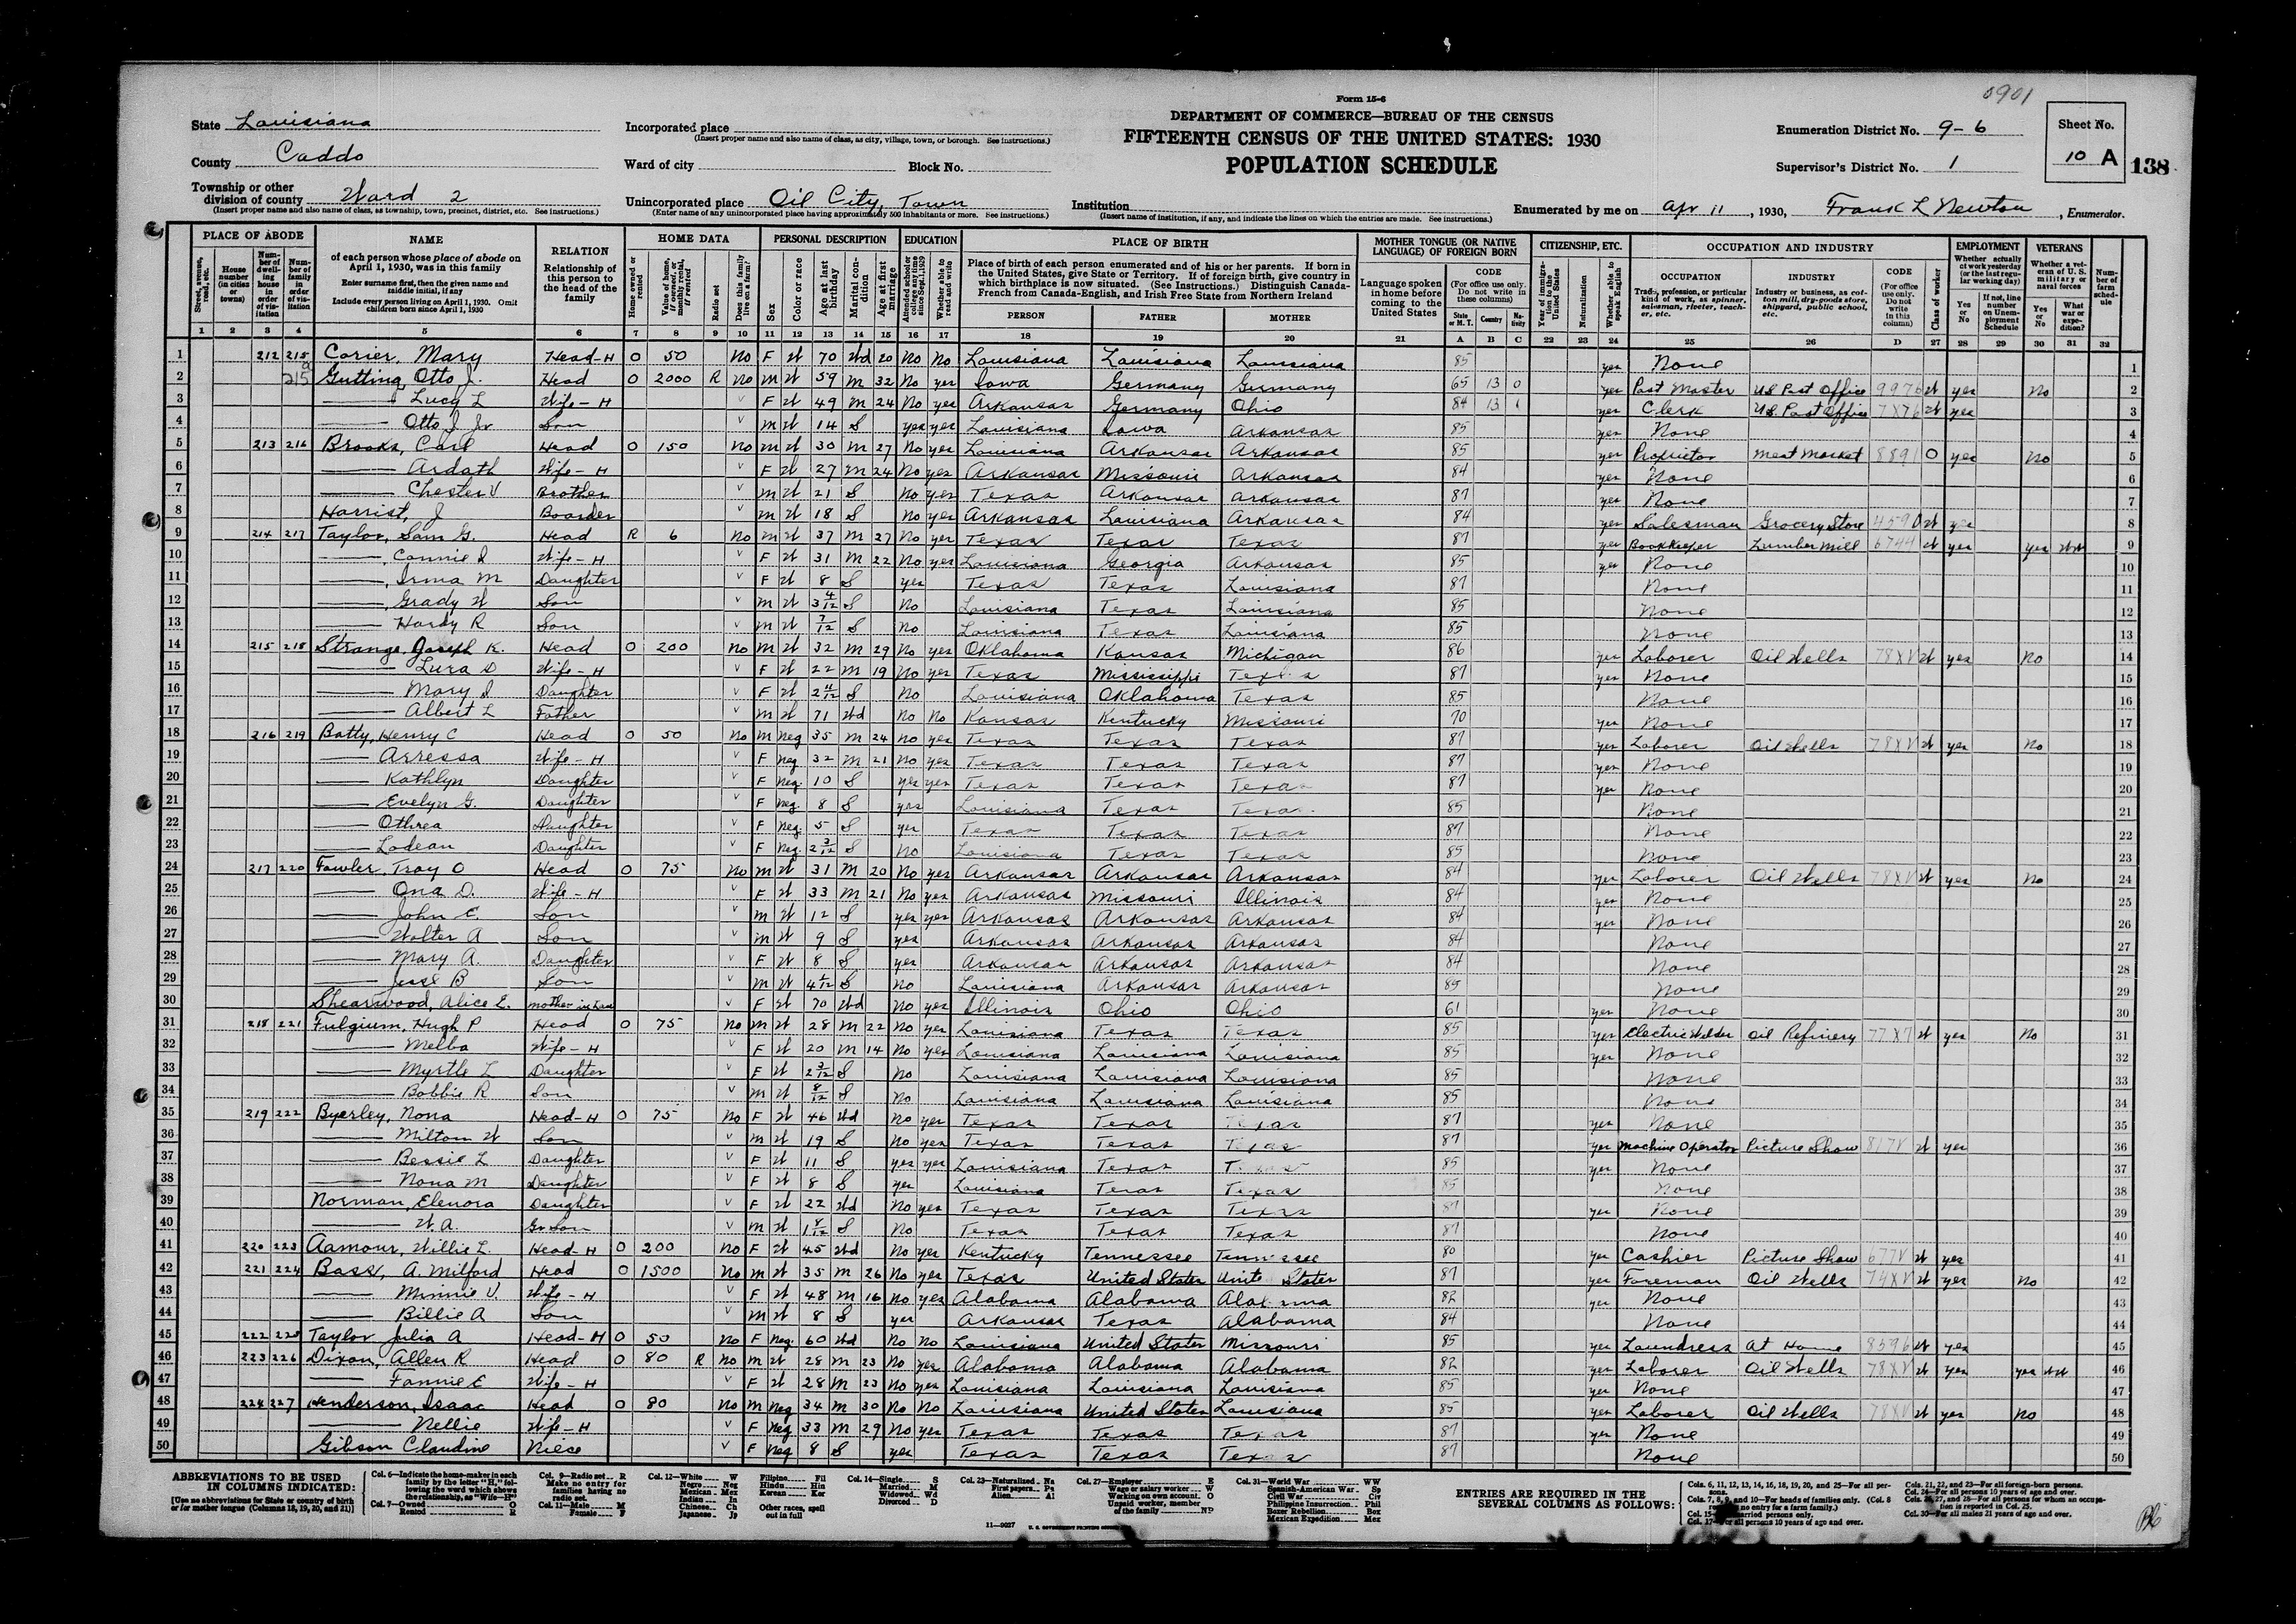 0901
Form 15-6
DEPARTMENT OF COMMERCE—BUREAU OF THE CENSUS
FIFTEENTH CENSUS OF THE UNITED STATES: 1930
POPULATION SCHEDULE
State Louisiana
County Caddo
Township or other division of county Ward 2
(Insert proper name and also name of class, as township, town, precinct, district, etc. See instructions.)
Incorporated place
(Insert proper name and also name of class, as city, village, town, or borough. See instructions.)
Ward of city Block No.
Unincorporated place Oil City, Town
(Enter name of any unincorporated place having approximately 500 inhabitants or more. See instructions.)
Institution
(Insert name of institution, if any, and indicate the lines on which the entries are made. See instructions.)
Enumeration District No. 9-6
Supervisor's District No. 1
Sheet No. 10 A
138
Enumerated by me on Apr 11, 1930, Frank L Newton, Enumerator.
PLACE OF ABODE NAME RELATION HOME DATA PERSONAL DESCRIPTION EDUCATION PLACE OF BIRTH MOTHER TONGUE (OR NATIVE LANGUAGE) OF FOREIGN BORN CITIZENSHIP, ETC. OCCUPATION AND INDUSTRY EMPLOYMENT VETERANS
1 212 215 Corier, Mary Head-H O 50 No F W 70 Wd 20 No No Louisiana Louisiana Louisiana 85 yes None
2 215a Gutting, Otto J. Head O 2000 R No M W 59 M 32 No yes Iowa Germany Germany 65 13 0 yes Post Master US Post Office 9976 W yes No
3 Lucy L Wife-H F W 49 M 24 No yes Arkansas Germany Ohio 84 13 1 yes Clerk US Post Office 7X76 W yes
4 Otto J Jr Son M W 14 S yes yes Louisiana Iowa Arkansas 85 yes None
5 213 216 Brooks, Carl Head O 150 No M W 30 M 27 No yes Louisiana Arkansas Arkansas 85 yes Proprietor Meat Market 8891 O yes No
6 Ardath Wife-H F W 27 M 24 No yes Arkansas Missouri Arkansas 84 yes None
7 Chester V Brother M W 21 S No yes Texas Arkansas Arkansas 87 yes None
8 Harrist, J Boarder M W 18 S No yes Arkansas Louisiana Arkansas 84 yes Salesman Grocery Store 4590 W yes
9 214 217 Taylor, Sam G. Head R 6 No M W 37 M 27 No yes Texas Texas Texas 87 yes Bookkeeper Lumber Mill 6744 W yes yes WW
10 Connie I Wife-H F W 31 M 22 No yes Louisiana Georgia Arkansas 85 yes None
11 Irma M Daughter F W 8 S yes Texas Texas Louisiana 87 None
12 Grady W Son M W 3 4/12 S No Louisiana Texas Louisiana 85 None
13 Hardy R Son M W 7/12 S No Louisiana Texas Louisiana 85 None
14 215 218 Strange, Joseph K. Head O 200 No M W 32 M 29 No yes Oklahoma Kansas Michigan 86 yes Laborer Oil Wells 78XV W yes No
15 Lura D Wife-H F W 22 M 19 No yes Texas Mississippi Texas 87 yes None
16 Mary I Daughter F W 2 11/12 S No Louisiana Oklahoma Texas 85 None
17 Albert L Father M W 71 Wd No No Kansas Kentucky Missouri 70 yes None
18 216 219 Batty, Henry C Head O 50 No M Neg 35 M 24 No yes Texas Texas Texas 87 yes Laborer Oil Wells 78XV W yes No
19 Arressa Wife-H F Neg 32 M 21 No yes Texas Texas Texas 87 yes None
20 Kathlyn Daughter F Neg. 10 S yes yes Texas Texas Texas 87 yes None
21 Evelyn G. Daughter F Neg. 8 S yes Louisiana Texas Texas 85 None
22 Othrea Daughter F Neg. 5 S yes Texas Texas Texas 87 None
23 Lodean Daughter F Neg. 2 3/12 S No Louisiana Texas Texas 85 None
24 217 220 Fowler, Troy O Head O 75 No M W 31 M 20 No yes Arkansas Arkansas Arkansas 84 yes Laborer Oil Wells 78XV W yes No
25 Ona D. Wife-H F W 33 M 21 No yes Arkansas Missouri Illinois 84 yes None
26 John E. Son M W 12 S yes yes Arkansas Arkansas Arkansas 84 yes None
27 Walter A Son M W 9 S yes Arkansas Arkansas Arkansas 84 None
28 Mary A. Daughter F W 8 S yes Arkansas Arkansas Arkansas 84 None
29 Jesse B Son M W S No Louisiana Arkansas Arkansas 85 None
30 Shearwood, Alice E. Mother in Law F W 70 Wd No yes Illinois Ohio Ohio 61 yes None
31 218 221 Fulgium, Hugh P Head O 75 No M W 28 M 22 No yes Louisiana Texas Texas 85 yes Electric Welder Oil Refinery 77X7 W yes No
32 Melba Wife-H F W 20 M 14 No yes Louisiana Louisiana Louisiana 85 yes None
33 Myrtle L Daughter F W 2 3/12 S No Louisiana Louisiana Louisiana 85 None
34 Bobbie R Son M W 8/12 S No Louisiana Louisiana Louisiana 85 None
35 219 222 Byerley, Nona Head-H O 75 No F W 46 Wd No yes Texas Texas Texas 87 yes None
36 Milton W Son M W 19 S No yes Texas Texas Texas 87 yes Machine Operator Picture Show 817V W yes
37 Bessie L Daughter F W 11 S yes yes Louisiana Texas Texas 85 yes None
38 Nona M Daughter F W 8 S yes Louisiana Texas Texas 85 None
39 Norman, Elenora Daughter F W 22 Wd No yes Texas Texas Texas 87 yes None
40 W.A. Gr Son M W 1 8/12 S No Texas Texas Texas 87 None
41 220 223 Aamour, Willie L. Head-H O 200 No F W 45 Wd No yes Kentucky Tennessee Tennessee 80 yes Cashier Picture Show 677V W yes
42 221 224 Bass, A. Milford Head O 1500 No M W 35 M 26 No yes Texas United States United States 87 yes Foreman Oil Wells 74XV W yes No
43 Minnie V. Wife-H F W 48 M 16 No yes Alabama Alabama Alabama 82 yes None
44 Billie A Son M W 8 S yes Arkansas Texas Alabama 84 None
45 222 225 Taylor Julia A Head-H O 50 No F Neg. 60 Wd No No Louisiana United States Missouri 85 yes Laundress At Home 8596 W yes
46 223 226 Dixon, Allen R Head O 80 R No M W 28 M 23 No yes Alabama Alabama Alabama 82 yes Laborer Oil Wells 78XV W yes yes WW
47 Fannie E Wife-H F W 28 M 23 No yes Louisiana Louisiana Louisiana 85 yes None
48 224 227 Henderson, Isaac Head O 80 No M Neg 34 M 30 No No Louisiana United States Louisiana 85 yes Laborer Oil Wells 78XV W yes No
49 Nellie Wife-H F Neg 33 M 29 No yes Texas Texas Texas 87 yes None
50 Gibson Claudine Niece F Neg 8 S yes Texas Texas Texas 87 None
ABBREVIATIONS TO BE USED IN COLUMNS INDICATED:
[Use no abbreviations for State or country of birth or for mother tongue (Columns 18, 19, 20, and 21)]
ENTRIES ARE REQUIRED IN THE SEVERAL COLUMNS AS FOLLOWS:
11—9027